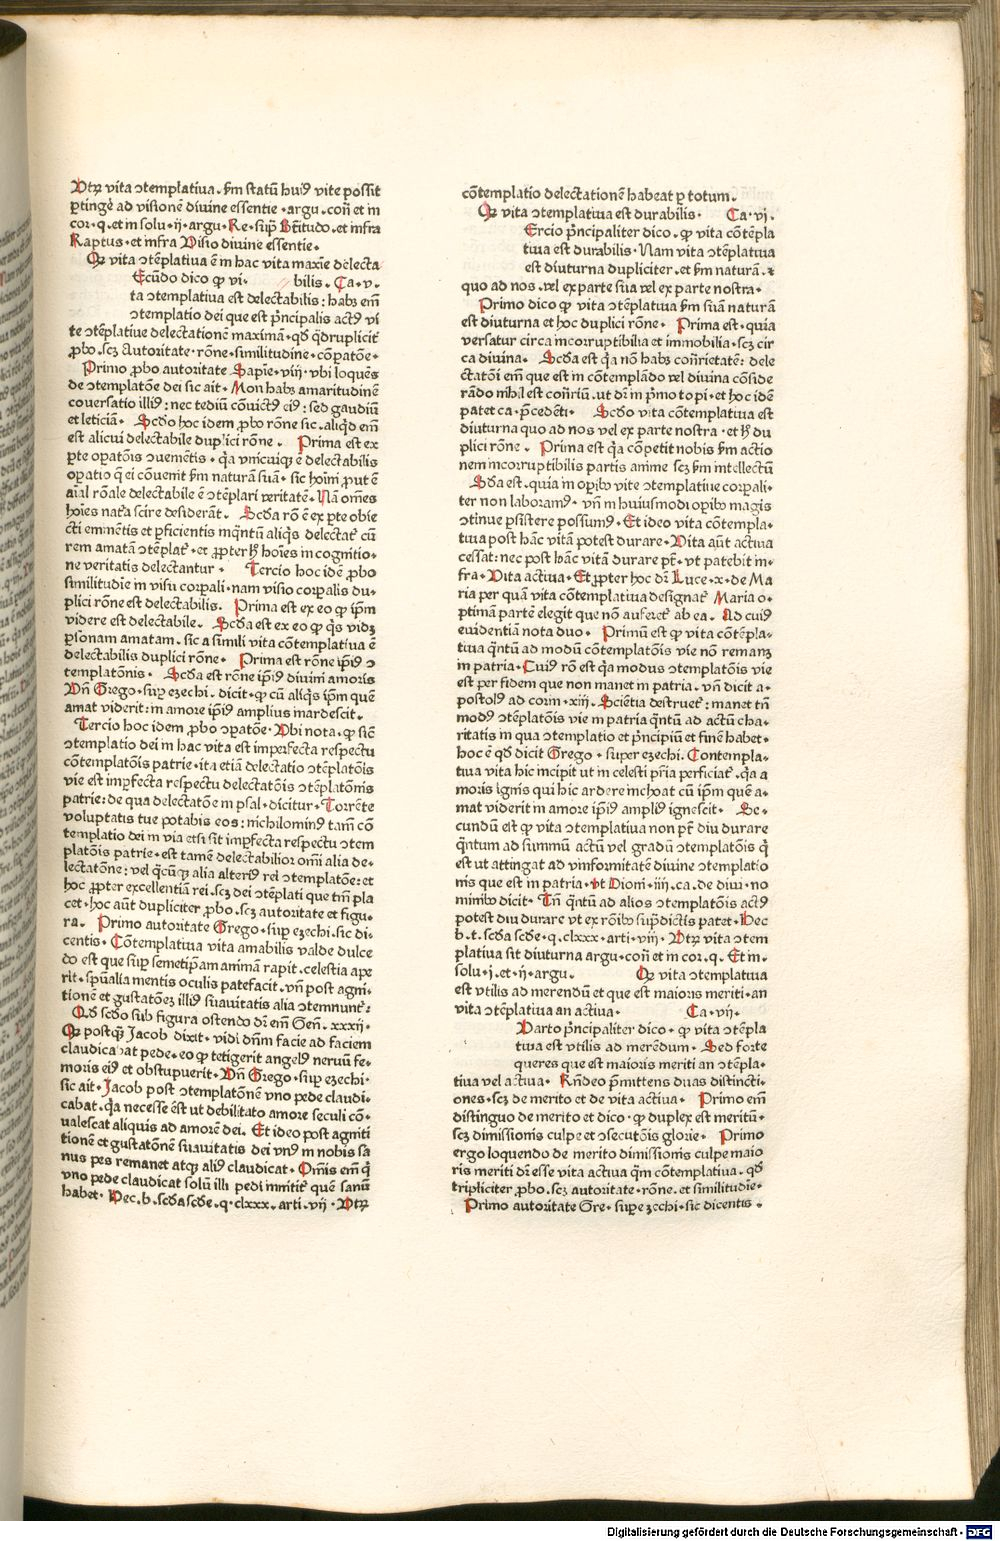 Vtꝝ vita ↄtemplatiua . ẜm statū huiꝰ vite possit
ꝑtinge᷑ ad visionē diuine essentie . argu . coñ et in
cor . q . et in solu . ij . argu . Re . suꝑ Btĩtudo . et infra
Raptus . et infra Visio diuine essentie .
Qꝫ vita ↄtēplatiua ē in hac vita maxīe delecta
Ecūdo dico ꝙ vi- bilis . Ca . v .
ta ↄtemplatiua est delectabilis : habꝫ em̄
ↄtemplatio dei que est pñcipalis actꝰ vi
te ↄtēplatiue delectationē maximā . qđ q̄druplicit᷑
ꝓbo . scꝫ Autoritate . rōne . similitudine . cōpatōe .
Primo ꝓbo autoritate Sapīe . viij . vbi loquēs
de ↄtemplatōe dei sic ait . Non habꝫ amaritudinē
cōuersatio illiꝰ : nec tediū cōuictꝰ eiꝰ : sed gaudiū
et leticiā . Scđo hoc idem ꝓbo rōne sic . aliqđ em̄
est alicui delectabile duplici rōne . Prima est ex
ꝑte oꝑatōis ↄuenientis . q̄a vnicuiqꝫ ē delectabilis
oꝑatio q̄ ei cōuenit ẜm naturā suā . sic hoīni ꝓut ē
aīal rōnale delectabile ē ↄtēplari veritatē . Nā om̄es
hoīes nat᷑a scire desiderāt . Scđa rō ē ex ꝑte obie
cti eminētis et ꝑficientis inq̄ntū aliqͥs delectat᷑ cū
rem amatā ↄtēplat᷑ . et ꝓpter hͦ hoīes in cognitio-
ne veritatis delectantur . Tercio hoc idē ꝓbo
similitudīe in visu corpali . nam visio corpalis du-
plici rōne est delectabilis . Prima est ex eo ꝙ ip̄m
videre est delectabile . Scđa est ex eo ꝙ qͥs videꝫ
ꝑsonam amatam . sic a simili vita cōtemplatiua ē
delectabilis duplici rōne . Prima est rōne ip̄iꝰ ↄ
templatōnis . Scđa est rōne ip̄iꝰ diuini amoris
Vn̄ Grego . suꝑ ezechi . dicit . ꝙ cū aliqͥs ip̄m quē
amat viderit : in amore ip̄iꝰ amplius inardescit .
Tercio hoc idem ꝓbo ↄpatōe . Vbi nota . ꝙ sic̄
ↄtemplatio dei in hac vita est imperfecta respectu
cōtemplatōis patrie . ita etiā delectatio ↄtēplatōis
vie est imꝑfecta respectu delectatōis ↄtēplatōnis
patrie : de qua delectatōe in psal . dicitur . Torrēte
voluptatis tue potabis eos : nichilominꝰ tam̄ cō
templatio dei in via etsi sit imꝑfecta respectu ↄtem
platōis patrie . est tamē delectabilior om̄i alia de-
lectatōne : vel q̄cūqꝫ alia alteriꝰ rei ↄtemplatōe : et
hoc ꝓpter excellentiā rei . scꝫ dei ↄtēplati que tm̄ pla
cet . hoc aūt dupliciter ꝓbo . scꝫ autoritate et figu-
ra . Primo autoritate Grego . suꝑ ezechi . sic di-
centis . Cōtemplatiua vita amabilis valde dulce
do est que suꝑ semetip̄am animā rapit . celestia ape
rit . spūalia mentis oculis patefacit . vn̄ post agni-
tionē et gustatōeꝫ illiꝰ suauitatis alia ↄtemnunt᷑ :
Qđ scđo sub figura ostendo dr̄ em̄ Gen̄ . xxxij .
Qꝫ postq̄ꝫ Jacob dixit . vidi dn̄m facie ad faciem
claudicabat pede . eo ꝙ tetigerit angelꝰ neruū fe-
moris eiꝰ et obstupuerit . Vn̄ Grego . suꝑ ezechi .
sic ait . Jacob post ↄtemplatōnē vno pede claudi-
cabat . q̄a necesse est ut debilitato amore seculi cō-
ualescat aliquis ad amorē dei . Et ideo post agniti
tionē et gustatōnē suauitatis dei vnꝰ in nobis sa
nus pes remanet atqꝫ aliꝰ claudicat . Om̄is em̄ q̄
vno pede claudicat solū illi pedi innitit᷑ quē sanū
habet . Hec . b . scđa scđe . q . clxxx . arti . vij . Vtꝝ
cōtemplatio delectationē habeat ꝑ totum .
Qꝫ vita ↄtemplatiua est durabilis . Ca . vj .
Ercio pñcipaliter dico . ꝙ vita cōtēpla
tiua est durabilis . Nam vita ↄtēplatiua
est diuturna dupliciter . et ẜm naturā . ⁊
quo ad nos . vel ex parte sua vel ex parte nostra .
Primo dico ꝙ vita ↄtēplatiua ẜm suā naturā
est diuturna et hoc duplici rōne . Prima est . quia
versatur circa incorruptibilia et immobilia . scꝫ cir
ca diuina . Scđa est q̄a nō habꝫ cōñrietatē : dele
ctatōi em̄ que est in cōtemplādo vel diuina cōside
rādo nihil est cōñriū . ut dr̄ in pͥmo topi . et hoc idē
patet ca . p̄cedēti . Scđo vita cōtemplatiua est
diuturna quo ad nos vel ex parte nostra . et hͦ du
plici rōne . Prima est q̄a cōpetit nobis ẜm actio
nem incorruptibilis partis anime scꝫ ẜm intellectū
Scđa est . quia in opībꝰ vite ↄtemplatiue corpali-
ter non laboramꝰ . vn̄ in huiusmodi opībꝰ magis
ↄtinue ꝑsistere possumꝰ . Et ideo vita cōtempla-
tiua post hāc vitā potest durare . Vita aūt actiua
cessat : nec post hāc vitā durare pt̄ . vt patebit in-
fra . Vita actiua . Et ꝓpter hoc dr̄ Luce . x . de Ma
ria per quā vita cōtemplatiua designat᷑ Maria o-
ptimā partē elegit que nō auferet᷑ ab ea . Ad cuiꝰ
euidentiā nota duo . Primū est ꝙ vita cōtēpla-
tiua q̄ntū ad modū cōtemplatōis vie nō remanꝫ
in patria . Cuiꝰ rō est q̄a modus ↄtemplatōis vie
est per fidem que non manet in patria . vn̄ dicit a-
postolꝰ ad corin . xiij . Sciētia destruet᷑ : manet tn̄
modꝰ ↄtēplatōis vie in patria q̄ntū ad actū cha-
ritatis in qua ↄtemplatio et pñcipiū et finē habet .
hoc ē qđ dicit Grego . super ezechi . Contempla-
tiua vita hic incipit ut in celesti p̄ria perficiat᷑ . q̄a a
moris ignis qui hic ardere inchoat cū ip̄m quē a-
mat viderit in amore ip̄iꝰ ampliꝰ ignescit . Se-
cundū est ꝙ vita ↄtemplatiua non pt̄ diu durare
q̄ntum ad summū actū vel gradū ↄtemplatōis q̄
est ut attingat ad vniformitatē diuine ↄtemplatio
nis que est in patria . vt Dioni . iiij . ca . de diui . no
minibꝰ dicit . Tn̄ q̄ntū ad alios ↄtemplatōis actꝰ
potest diu durare vt ex rōibꝰ suꝑdictis patet . Hec
b . t . scđa scđe . q . clxxx . arti . viij . Vtꝝ vita ↄtem
platiua sit diuturna argu . coñ et in cor . q . Et in .
solu . j . et . ij . argu . Qꝫ vita ↄtemplatiua
est vtilis ad merendū et que est maioris meriti . an
vita ↄtēplatiua an actiua . Ca . vij .
Varto pñcipaliter dico . ꝙ vita ↄtēpla
tiua est vtilis ad merēdum . Sed forte
queres que est maioris meriti an ↄtēpla-
tiua vel actiua . Rn̄deo p̄mittens duas distincti-
ones . scꝫ de merito et de vita actiua . Primo em̄
distinguo de merito et dico . ꝙ duplex est meritū .
scꝫ dimissionis culpe et ↄsecutōis glorie . Primo
ergo loquendo de merito dimissionis culpe maio
ris meriti dr̄ esse vita actiua q̄m cōtemplatiua . qđ
tripliciter ꝓbo . scꝫ autoritate . rōne . et similitudīe .
Primo autoritate Gre . supe ezechi . sic dicentis .
Digitalisierung gefördert durch die Deutsche Forschungsgemeinschaft - DFG